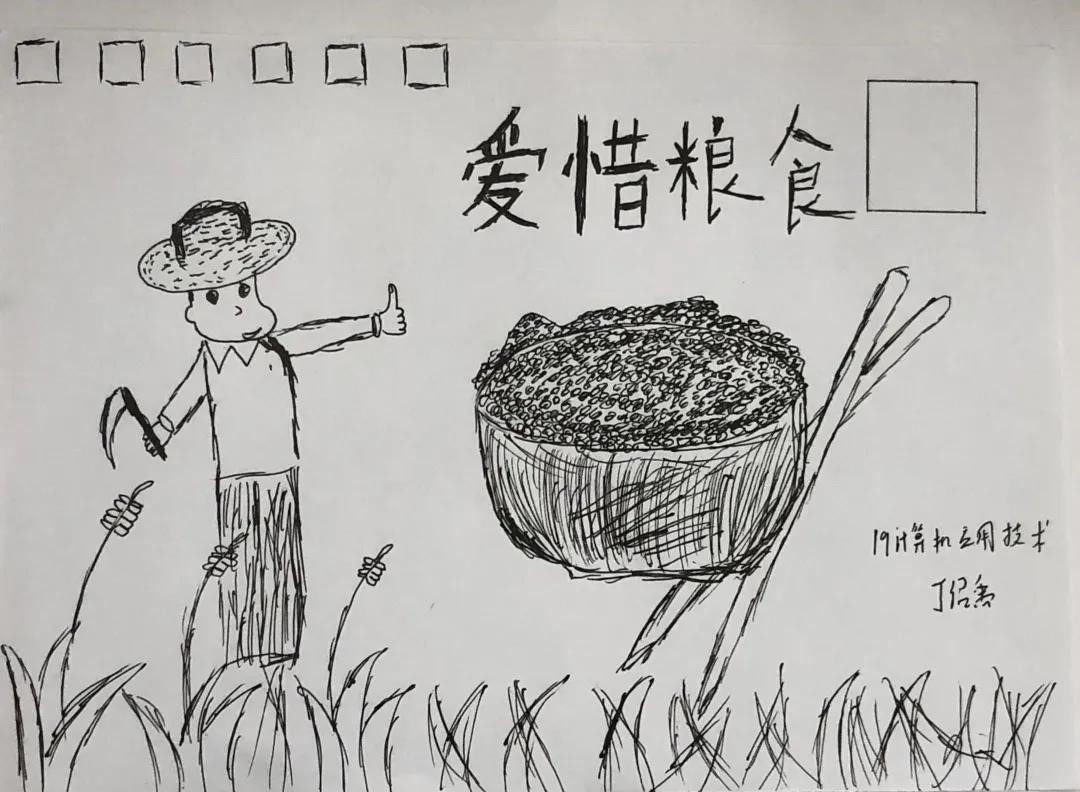 爱惜粮食
19计算机应用技术